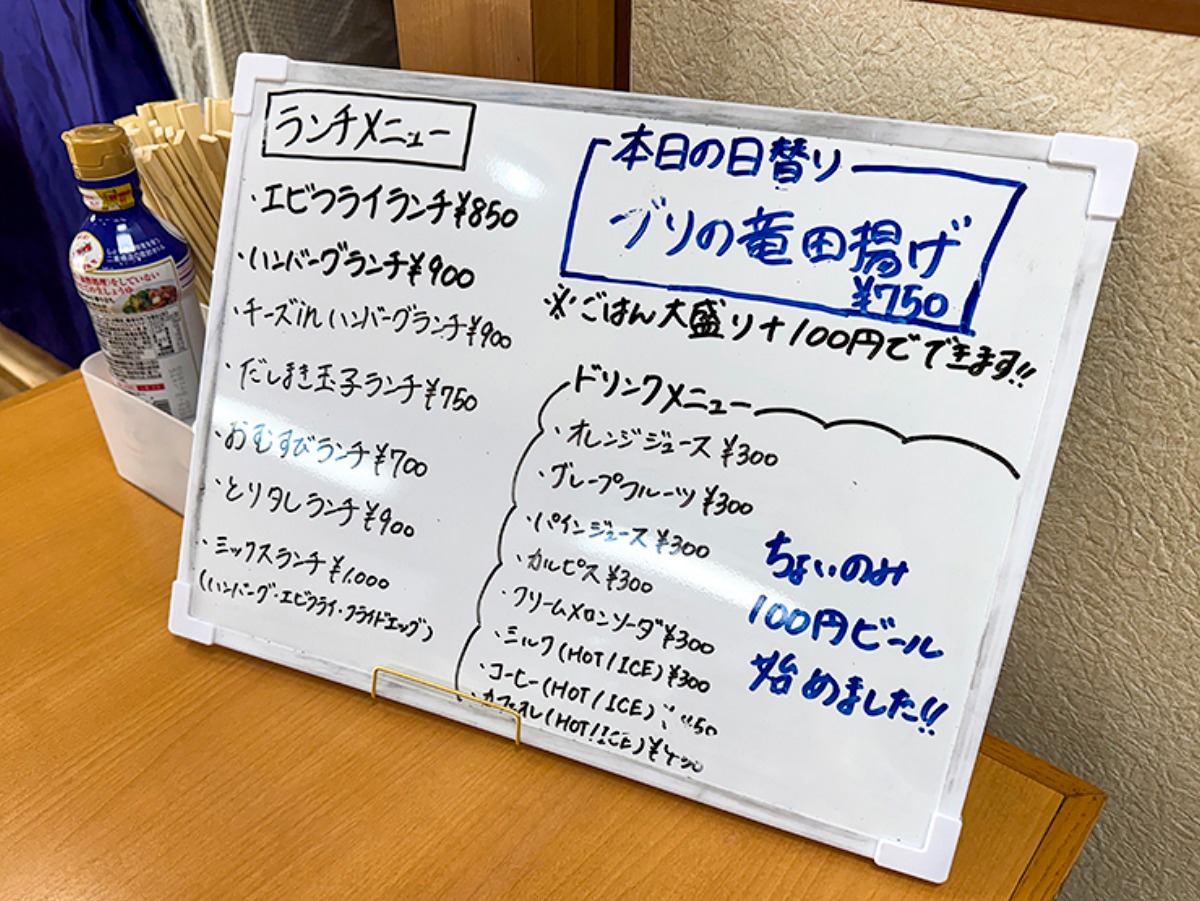 ランチメニュー
・エビフライランチ¥850
・ハンバーグランチ¥900
・チーズinハンバーグランチ¥900
・だしまき玉子ランチ¥750
・おむすびランチ¥700
・とりタレランチ¥900
・ミックスランチ¥1.000
(ハンバーグ・エビフライ・フライドエッグ)
本日の日替り
ブリの竜田揚げ
¥750
※ごはん大盛り+100円でできます!!
ドリンクメニュー
・オレンジジュース¥300
・グレープフルーツ¥300
・パインジュース¥300
・カルピス¥300
・クリームメロンソーダ¥300
・ミルク(HOT/ICE)¥300
・コーヒー(HOT/ICE)
・カフェオレ(HOT/ICE)
ちょいのみ
100円ビール
始めました!!